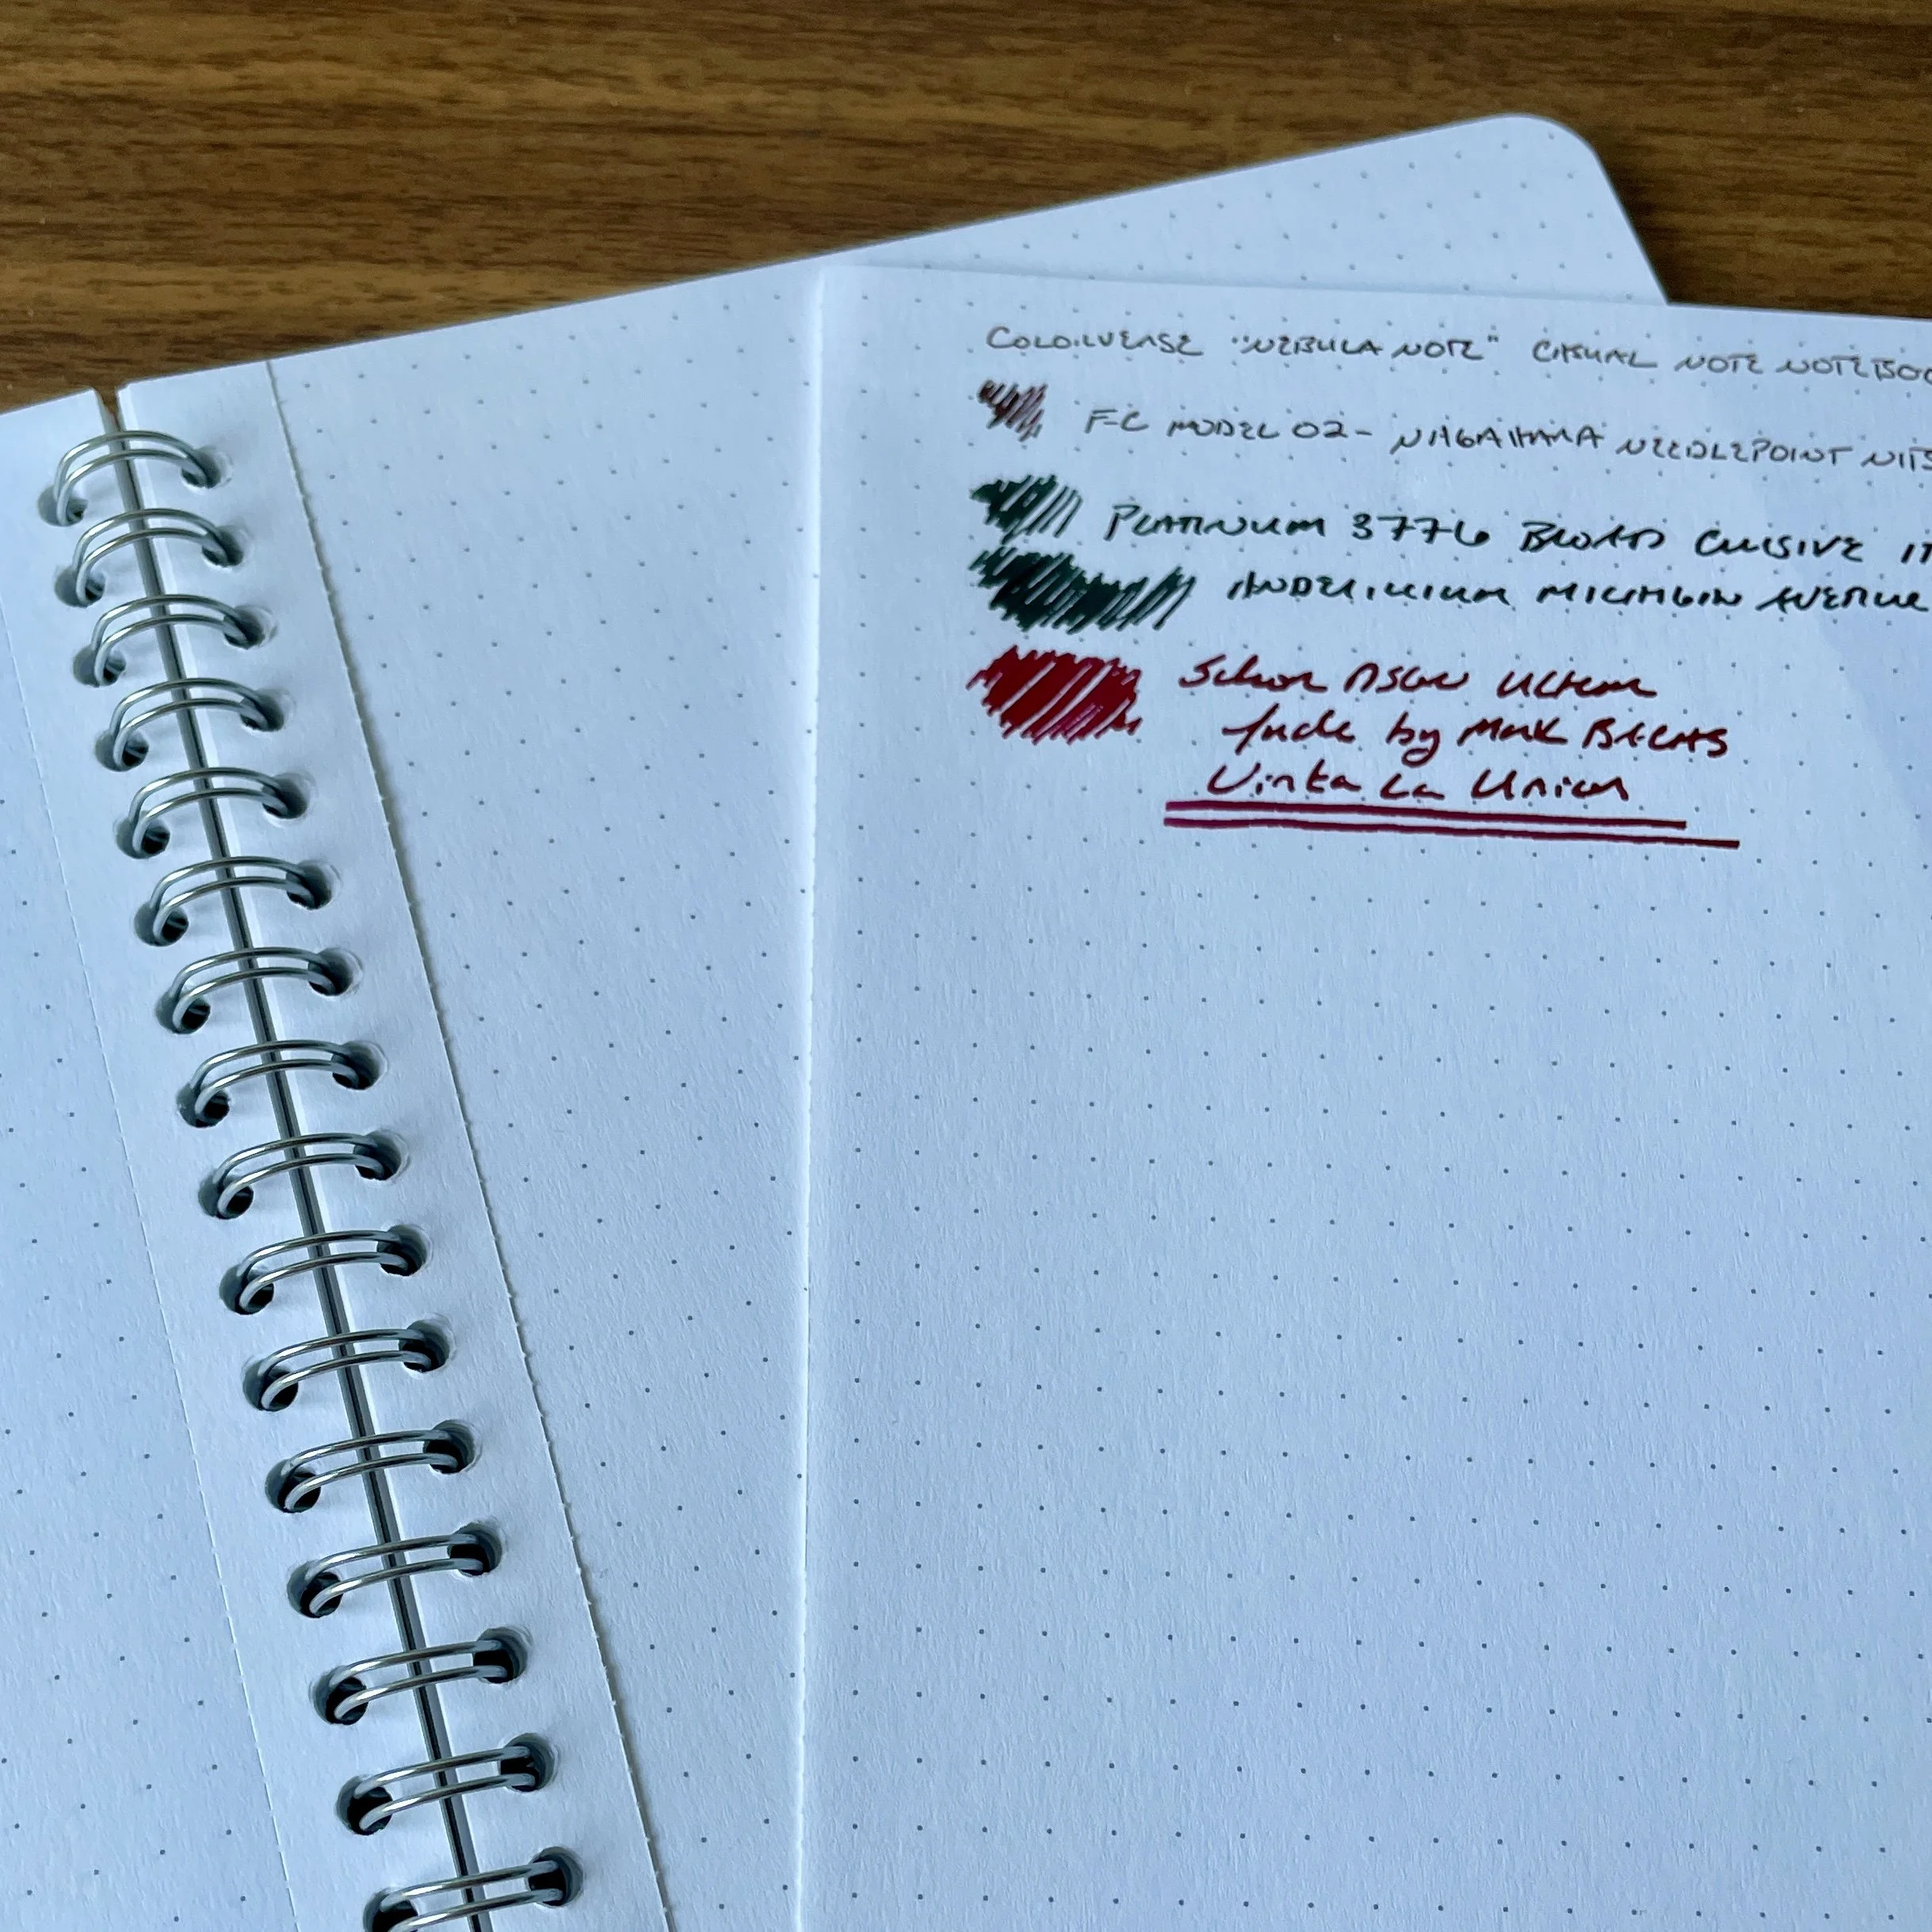 COLORVERSE "NEBULA NOTE" CASUAL NOTE
FC MODEL 02- NAGAHARA NEEDLEPOINT NIB
PLATINUM 3776 BROAD CURSIVE IT
ANDERILLIUM MICHIGAN AVENUE
Schon DSGN Ultem
fude by Mark BACAS
Vinta La Union